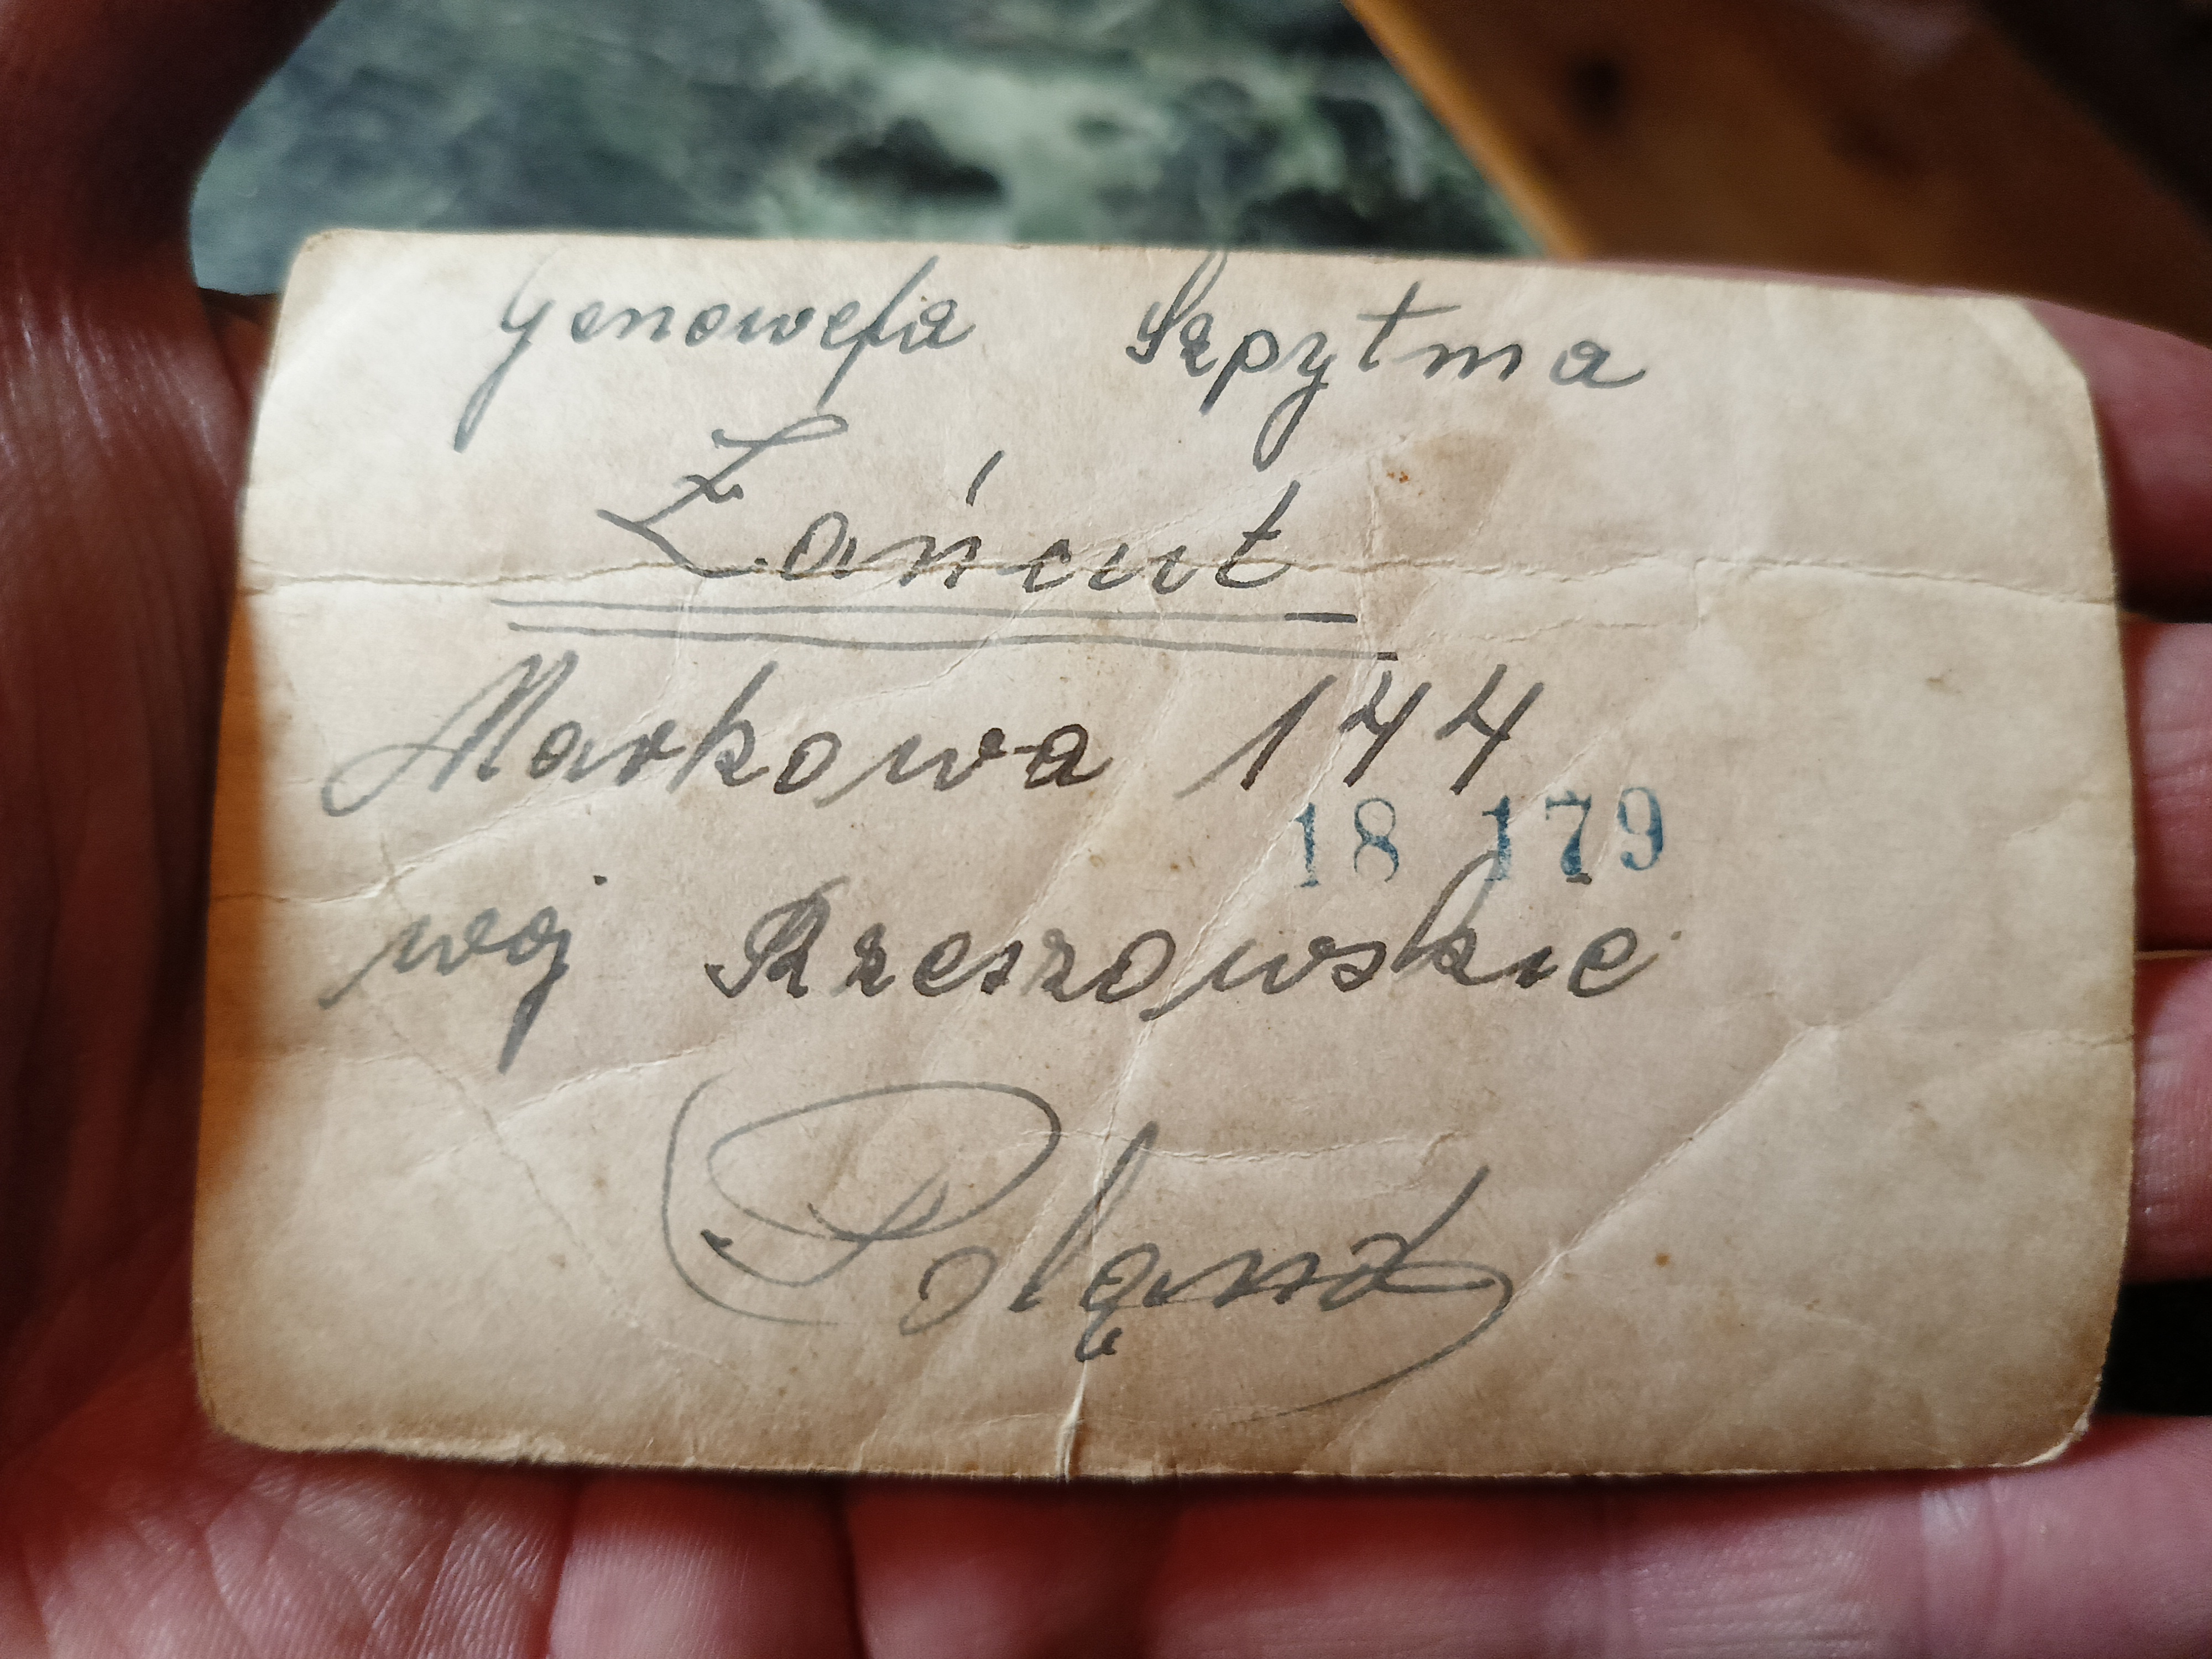 Genowefa Szpytma
Łańcut
Markowa 144
18 179
woj Rzeszowskie
Poland